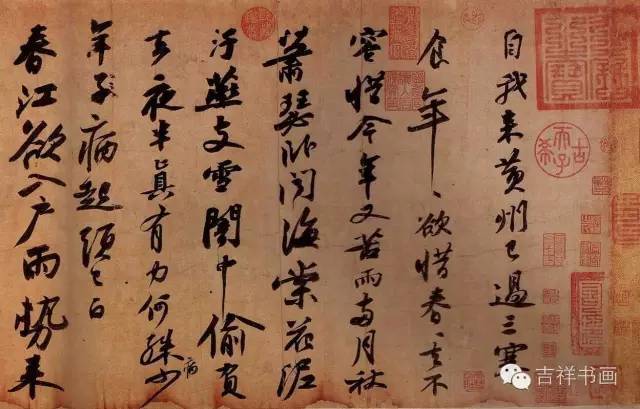 自我来黄州已過三寒
食年、欲惜春、去不
容惜今年又苦雨兩月秋
蕭瑟卧聞海棠花泥
汙燕支雪闇中偷負
去夜半真有力何殊病少
年子病起須已白
春江欲入户雨勢来
古希天子
吉祥书画